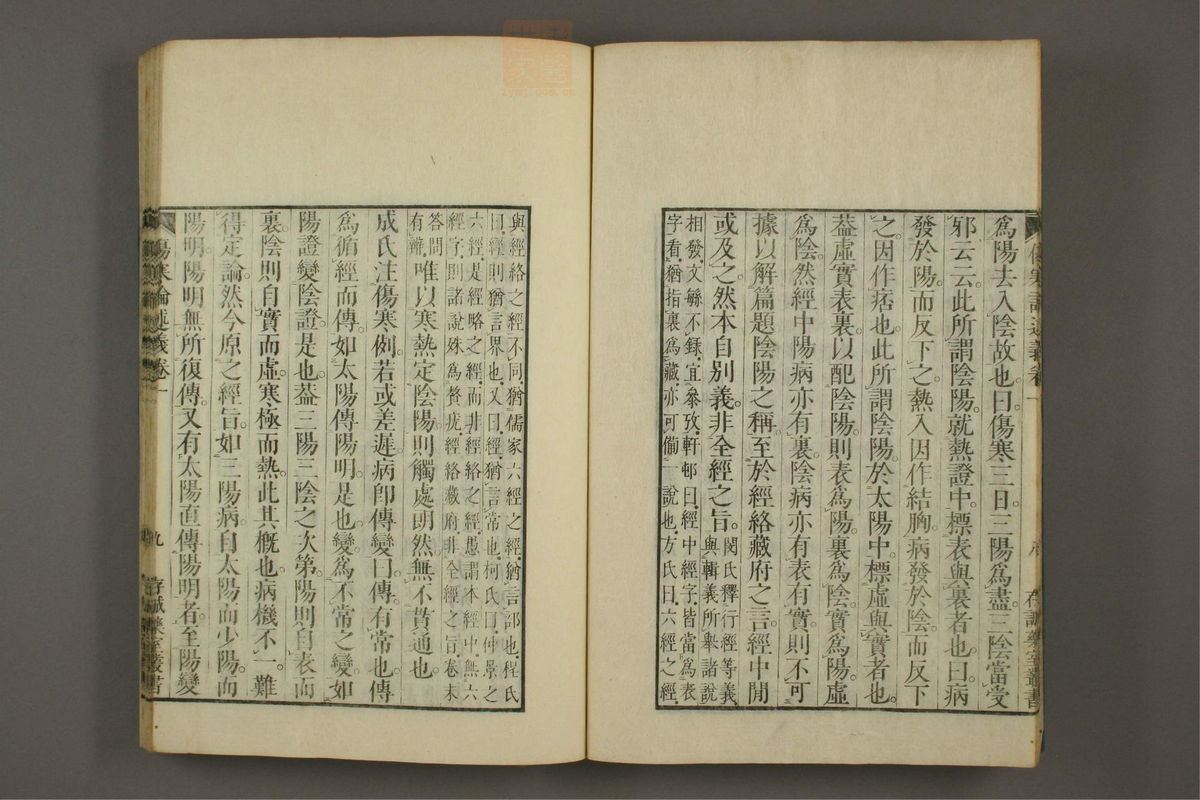 爲陽去入陰故也曰傷寒三日三陽爲盡三陰當受
邪云云此所謂陰陽就熱證中標表與裏者也曰病
發於陽而反下之熱入因作結胸病發於陰而反下
之因作痞也此所謂陰陽於太陽中標虛與實者也
葢虛實表裏以配陰陽則表爲陽裏爲陰實爲陽虛
爲陰然經中陽病亦有裏陰病亦有表有實則不可
據以解篇題陰陽之稱至於經絡藏府之言經中閒
或及之然本自別義非全經之旨
閔氏釋行經等義
與輯義所舉諸說
相發文繇不錄宜參攷軒邨曰經中經字皆當爲表
字看猶指裏爲藏亦可備一說也方氏曰六經之經
存誠藥室叢書
與經絡之經不同猶儒家六經之經猶言部也程氏
曰經則猶言界也又曰經猶言常也柯氏曰仲景之
六經是經略之經而非經絡之經愚謂本經中無六
經字則諸說殊爲贅疣經絡藏府非全經之旨卷末
答問
有辨
唯以寒熱定陰陽則觸處朗然無不貫通也
成氏注傷寒例若或差遲病卽傳變曰傳有常也傳
爲循經而傳如太陽傳陽明是也變爲不常之變如
陽證變陰證是也葢三陽三陰之次第陽則自表而
裏陰則自實而虛寒極而熱此其概也病機不一難
得定論然今原之經旨如三陽病自太陽而少陽而
陽明陽明無所復傳又有太陽直傳陽明者至陽變
傷寒論述義卷一
九
存誠藥室叢書